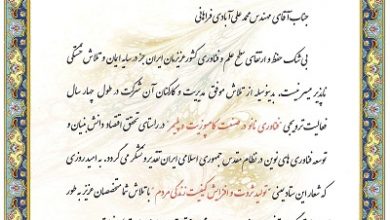 جناب آقای مهندس محمد علی آبادی فراهانی
بی شک حفظ و ارتقای سطح علم و فناوری کشور عزیزمان ایران جز در سایه ایمان و تلاش خستگی
ناپذیر میسر نیست. بدینوسیله از تلاش موفق مدیریت و کارکنان آن شرکت در طول چهار سال
فعالیت ترویجی "فناوری نانو در صنعت کامپوزیت و پلیمر" در راستای تحقق اقتصاد دانش بنیان و
توسعه فناوری های نوین در نظام مقدس جمهوری اسلامی ایران تقدیر و تشکر می گردد. به امید روزی
که شعار این ستاد یعنی "تولید ثروت و افزایش کیفیت زندگی مردم" با تلاش شما متخصصان عزیز به طور